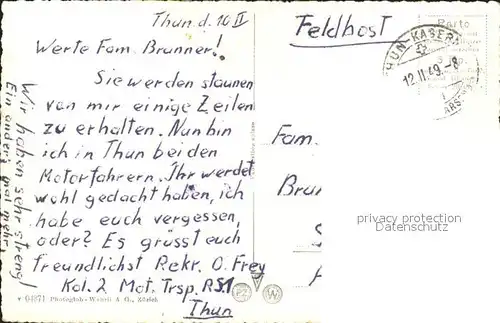 Thun d. 10 II
Werte Fam. Brunner!
Sie werden staunen
von mir einige Zeilen
zu erhalten. Nun bin
ich in Thun bei den
Motorfahrern. Ihr werdet
wohl gedacht haben, ich
habe euch vergessen,
oder? Es grüsst euch
freundlichst Rekr. O. Frey
Kol. 2 Mot. Trsp. RS 1
Thun
Wir haben sehr streng!
Ein anders mal mehr.
Feldpost
Porto
THUN-KASERNE
12.II.49.-8
Fam.
Brun
privacy protection
Datenschutz
Photoglob-Wehrli A. G., Zürich